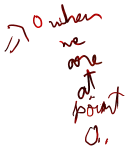 => 0 when
we
are
at
point
0.